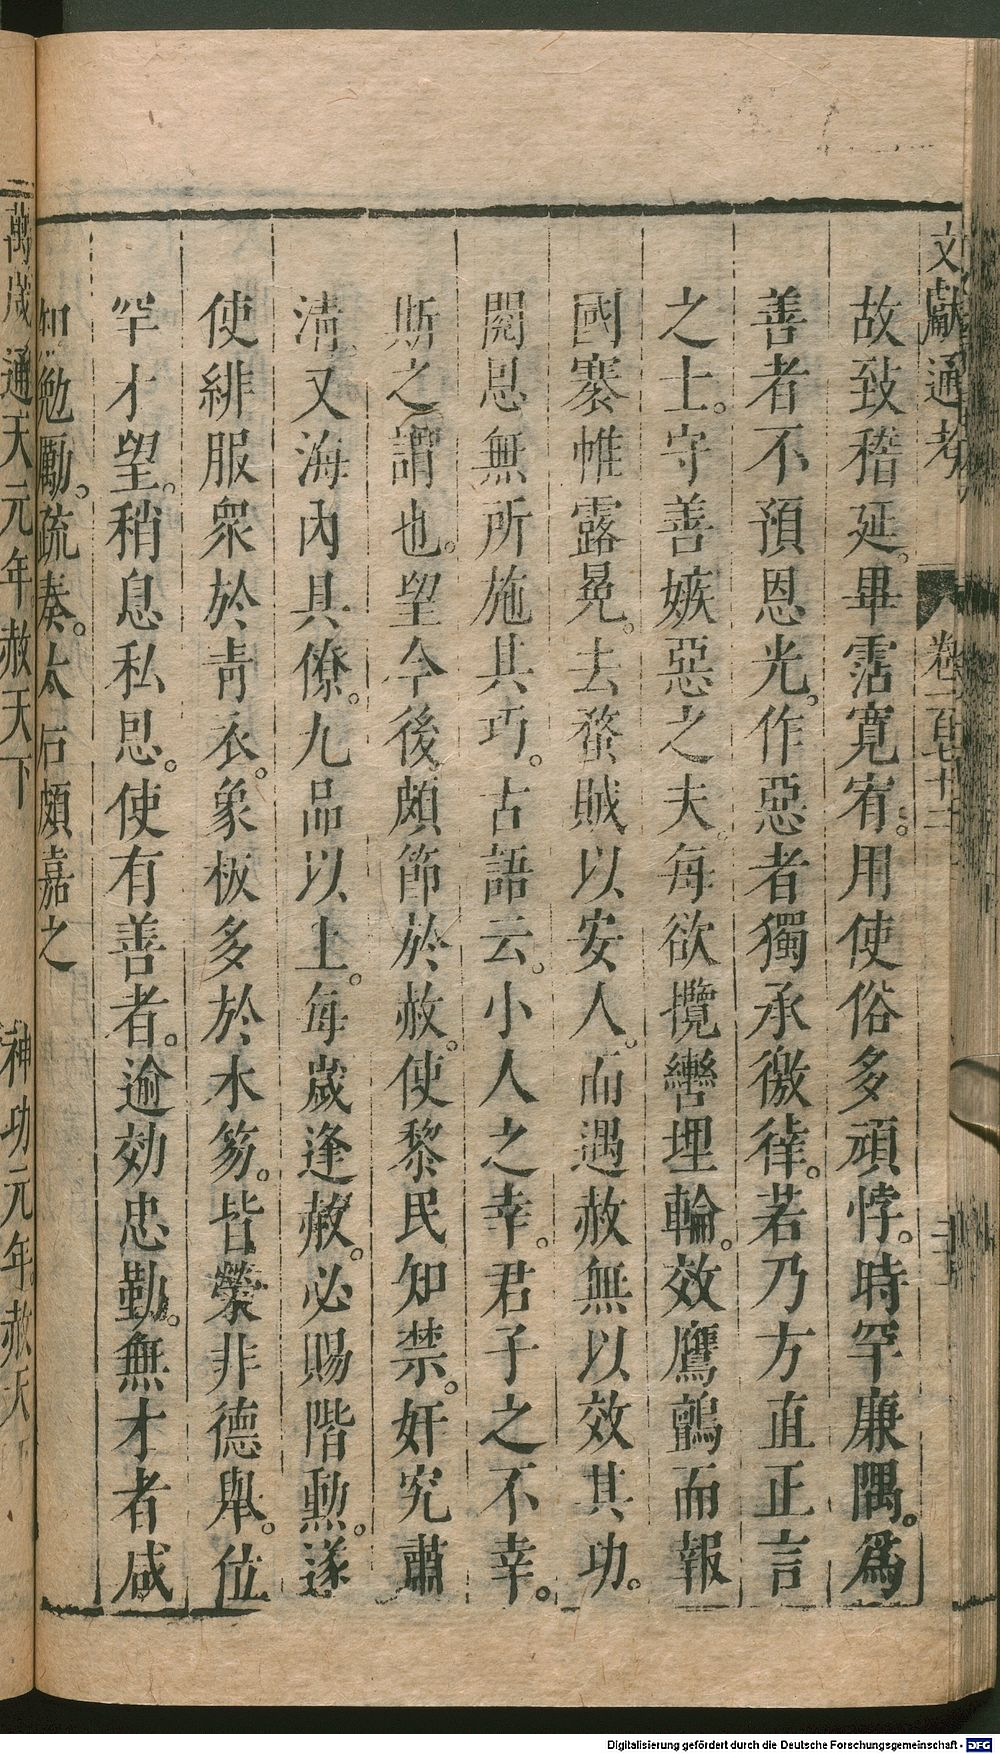 文獻通考 卷一百七十二
故致稽延。畢霑寬宥。用使俗多頑悖。時罕廉隅。爲
善者不預恩光。作惡者獨承徼倖。若乃方直正言
之士。守善嫉惡之夫。每欲攬轡埋輪。效鷹鸇而報
國寨帷露冕。去蝥賊以安人。而遇赦無以效其功。
閱恩無所施其巧。古語云。小人之幸。君子之不幸。
斯之謂也。望今後頗節於赦。使黎民知禁。奸宄肅
淸。又海內具僚。九品以上。每歲逢赦。必賜階勳。遂
使緋服衆於靑衣。象板多於木笏。皆縈非德舉。位
罕才望。稍息私恩。使有善者。逾効忠勤。無才者咸
知勉勵。疏奏。太后頗嘉之
萬歲通天元年赦天下 神功元年赦天
Digitalisierung gefördert durch die Deutsche Forschungsgemeinschaft - DFG